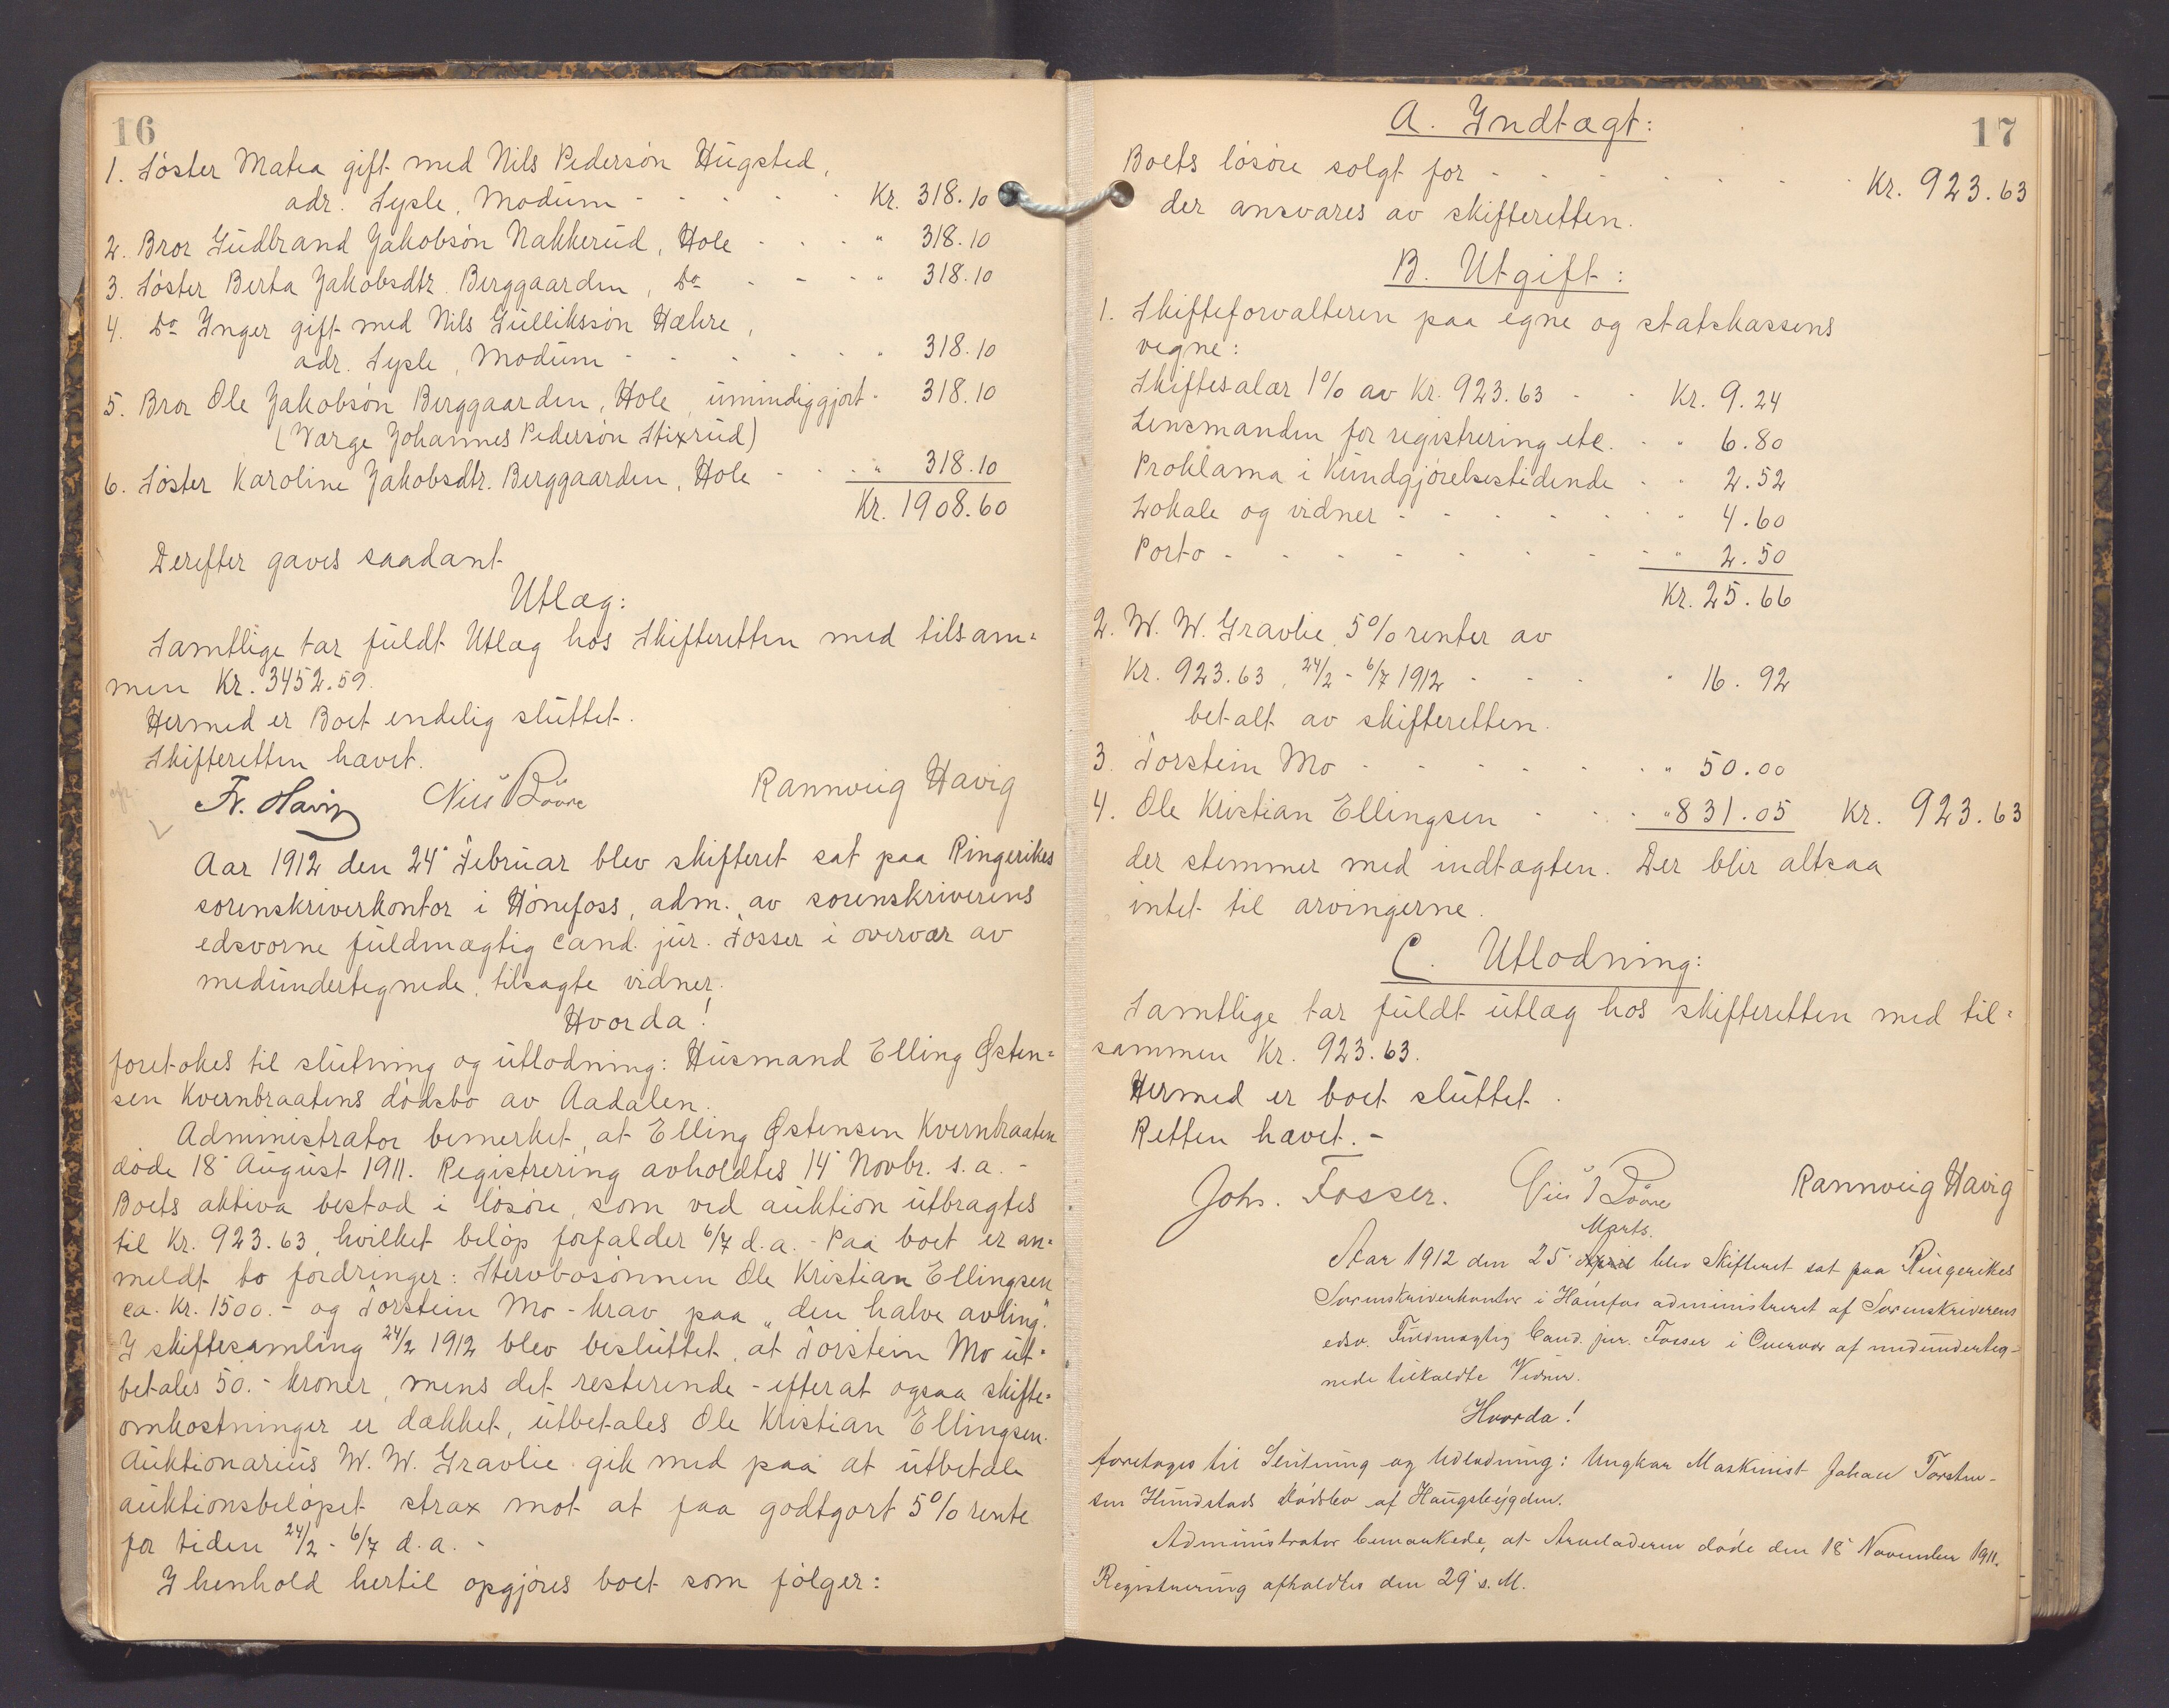 16
1. Søster Matea gift med Nils Pedersøn Hugsted,
adr. Sysle, Modum - - - - - Kr. 318.10
2. Bror Gudbrand Jakobsøn Nakkerud, Hole - - - " 318.10
3. Søster Berta Jakobsdtr. Berggaarden, Do - - - " 318.10
4. Do Inger gift med Nils Gulliksøn Hæhre,
adr. Sysle, Modum - - - - - " 318.10
5. Bror Ole Jakobsøn Berggaarden, Hole, umindiggjort " 318.10
(Værge Johannes Pedersøn Stixrud)
6. Søster Karoline Jakobsdtr. Berggaarden, Hole - - " 318.10
Kr. 1908.60
Derefter gaves saadant
Utlæg:
Samtlige tar fuldt Utlæg hos Skifteretten med tilsam=
men Kr. 3452.59.
Hermed er Boet endelig sluttet.
Skifteretten hævet.
Fr. Havig Rannveig Havig
Aar 1912 den 24' Februar blev skifteret sat paa Ringerikes
sorenskriverkontor i Hønefoss, adm. av sorenskriverens
edsvorne fuldmægtig cand. jur. Fosser i overvær av
medundertegnede, tilsagte vidner.
Hvorda!
foretokes til slutning og utlodning: Husmand Elling Østen=
sen Kvernbraatens dødsbo av Aadalen.
Administrator bemerket, at Elling Østensen Kvernbraaten
døde 18' August 1911. Registrering avholdtes 14' Novbr. s.a. -
Boets aktiva bestod i løsøre, som ved auktion utbragtes
til Kr. 923.63, hvilket beløp forfalder 6/7 d.a. - Paa boet er an=
meldt to fordringer: Stervbosønnen Ole Kristian Ellingsen
ca. Kr. 1500.- og Torstein Mo - krav paa "den halve avling".
I skiftesamling 24/2 1912 blev besluttet, at Torstein Mo ut=
betales 50.- kroner, mens det resterende - efterat ogsaa skifte=
omkostninger er dækket, utbetales Ole Kristian Ellingsen.
Auktionarius W. W. Gravlie gik med paa at utbetale
auktionsbeløpet strax mot at faa godtgjort 5% rente
for tiden 24/2 - 6/7 d.a. -
I henhold hertil opgjøres boet som følger:
17
A. Indtægt:
Boets løsøre solgt for - - - - - - - Kr. 923.63
der ansvares av skifteretten.
B. Utgift:
1. Skifteforvalteren paa egne og statskassens
vegne:
Skiftesalær 1% av Kr. 923.63 - - Kr. 9.24
Lensmanden for registrering etc. - " 6.80
Proklama i Kundgjørelsestidende - " 2.52
Lokale og vidner - - - - - - " 4.60
Porto - - - - - - - - " 2.50
Kr. 25.66
2. W. W. Gravlie, 5% renter av
Kr. 923.63, 24/2 - 6/7 1912 - - - " 16.92
betalt av skifteretten.
3. Torstein Mo - - - - - - " 50.00
4. Ole Kristian Ellingsen - - - " 831.05 Kr. 923.63
der stemmer med indtægten. Der blir altsaa
intet til arvingerne.
C. Utlodning:
Samtlige tar fuldt utlæg hos skifteretten med til=
sammen Kr. 923.63.
Hermed er boet sluttet.
Retten hævet. -
Johs. Fosser. Rannveig Havig
Marts.
Aar 1912 den 25' April blev Skifteret sat paa Ringerikes
Sorenskriverkontor i Hønefos administreret af Sorenskriverens
edsv. Fuldmægtig Cand. jur. Fosser i Overvær af medunderteg-
nede tilkaldte Vidner.
Hvorda!
foretoges til Slutning og Udlodning: Ungkar Maskinist Johan Torsten-
sen Hundstads Dødsbo af Haugsbygden.
Administrator bemærkede, at Arveladeren døde den 18' November 1911.
Registrering afholdtes den 29' s. M.